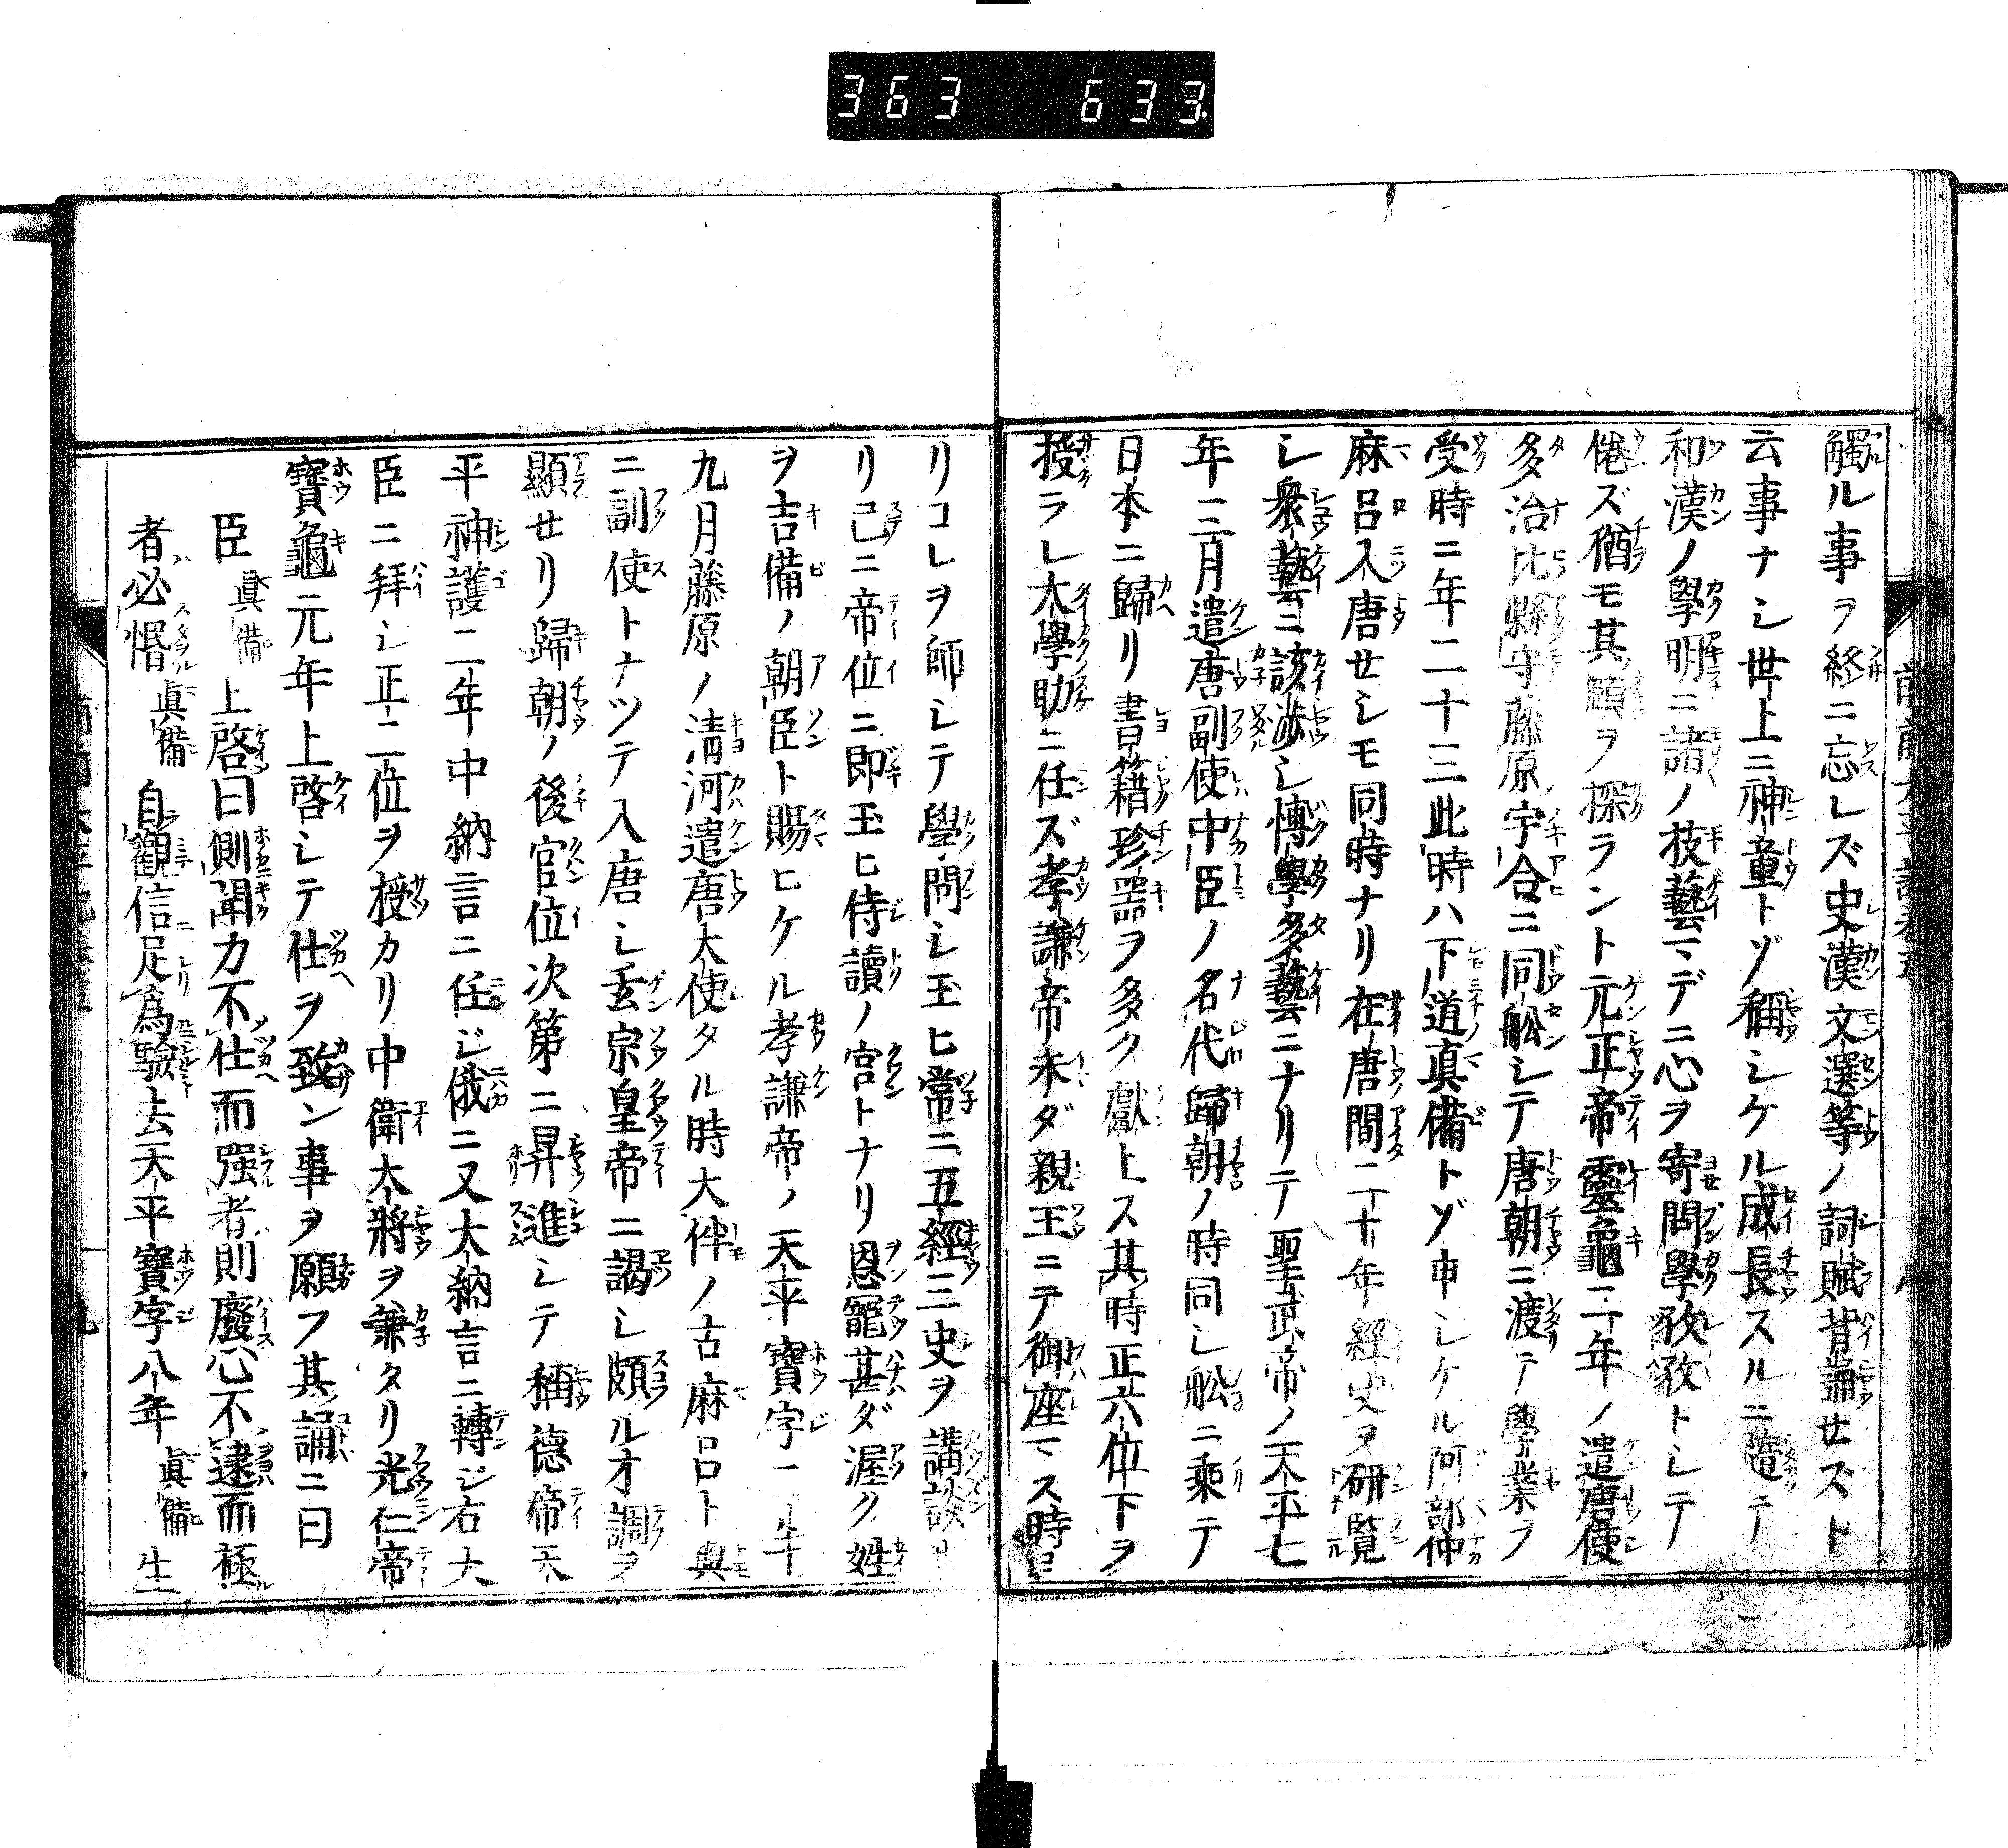 363 633
觸ル事ヲ終ニ忘レズ史漢文選等ノ詞賦背誦セズト
云事ナシ世上ニ神童トゾ稱シケル成長スルニ隨テ
和漢ノ學明ニ諸ノ技藝マデニ心ヲ寄問學孜孜トシテ
倦ズ猶モ其賾ヲ探ラント元正帝靈龜二年ノ遣唐使
多治比縣守藤原宇合ニ同舩シテ唐朝ニ渡テ學業ヲ
受時ニ年二十三此時ハ下道真備トゾ申シケル阿部仲
麻呂入唐セシモ同時ナリ在唐間二十年經史ヲ研覽
シ衆藝ニ該渉シ博學多藝ニナリテ聖武帝ノ天平七
年二月遣唐副使中臣ノ名代歸朝ノ時同シ舩ニ乘テ
日本ニ歸リ書籍珍器ヲ多ク獻上ス其時正六位下ヲ
授ラレ大學助ニ任ズ孝謙帝未ダ親王ニテ御座マス時ヨ
リコレヲ師シテ學問シ玉ヒ常ニ五經三史ヲ講談
リ已ニ帝位ニ即玉ヒ侍讀ノ官トナリ恩寵甚ダ渥ク姓
ヲ吉備ノ朝臣ト賜ヒケル孝謙帝ノ天平寶字一年
九月藤原ノ清河遣唐大使タル時大伴ノ古麻呂ト與
ニ副使トナツテ入唐シ玄宗皇帝ニ謁シ頗ル才調ヲ
顯セリ歸朝ノ後官位次第ニ昇進シテ稱德帝天
平神護二年中納言ニ任ジ俄ニ又大納言ニ轉ジ右大
臣ニ拜シ正二位ヲ授カリ中衛大將ヲ兼タリ光仁帝
寶龜元年上啓シテ仕ヲ致ン事ヲ願フ其誦ニ曰
臣眞備上啓曰側聞力不仕而強者則廢心不逮而極
者必惛眞備自觀信足爲驗去天平寶字八年眞備生